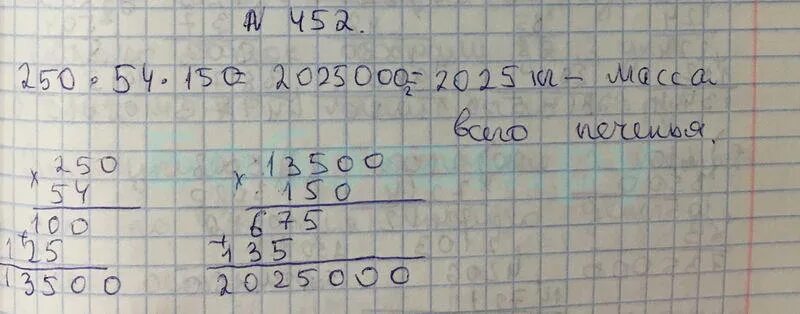 N 452.
250 · 54 · 150 = 2025000г = 2025 кг - масса
всего печенья.
× 250
54
100
+ 125
13500
× 13500
150
675
+ 135
2025000